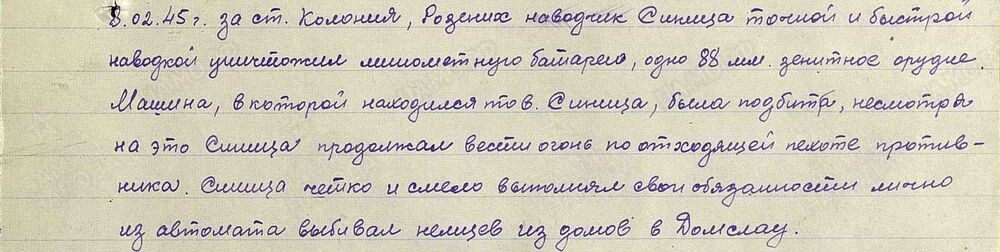 8.02.45 г. за ст. Колония, Розених наводчик Синица точной и быстрой
наводкой уничтожил минометную батарею, одно 88 мм. зенитное орудие.
Машина, в которой находился тов. Синица, была подбита, несмотря
на это Синица продолжал вести огонь по отходящей пехоте против-
ника. Синица четко и смело выполнял свои обязанности лично
из автомата выбивал немцев из домов в Домслау.